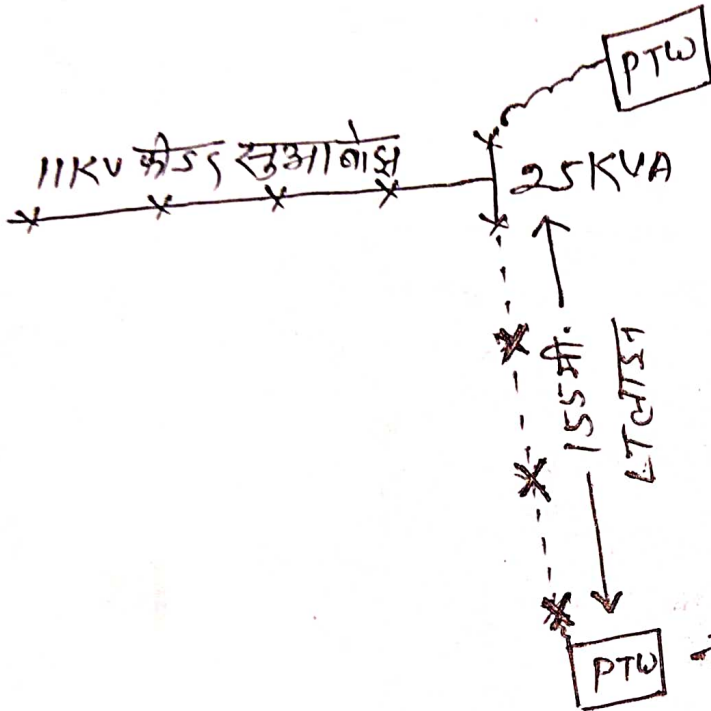 PTW
11KV फीडर सुआबोझ
25KVA
155मी.
LTलाइन
PTW